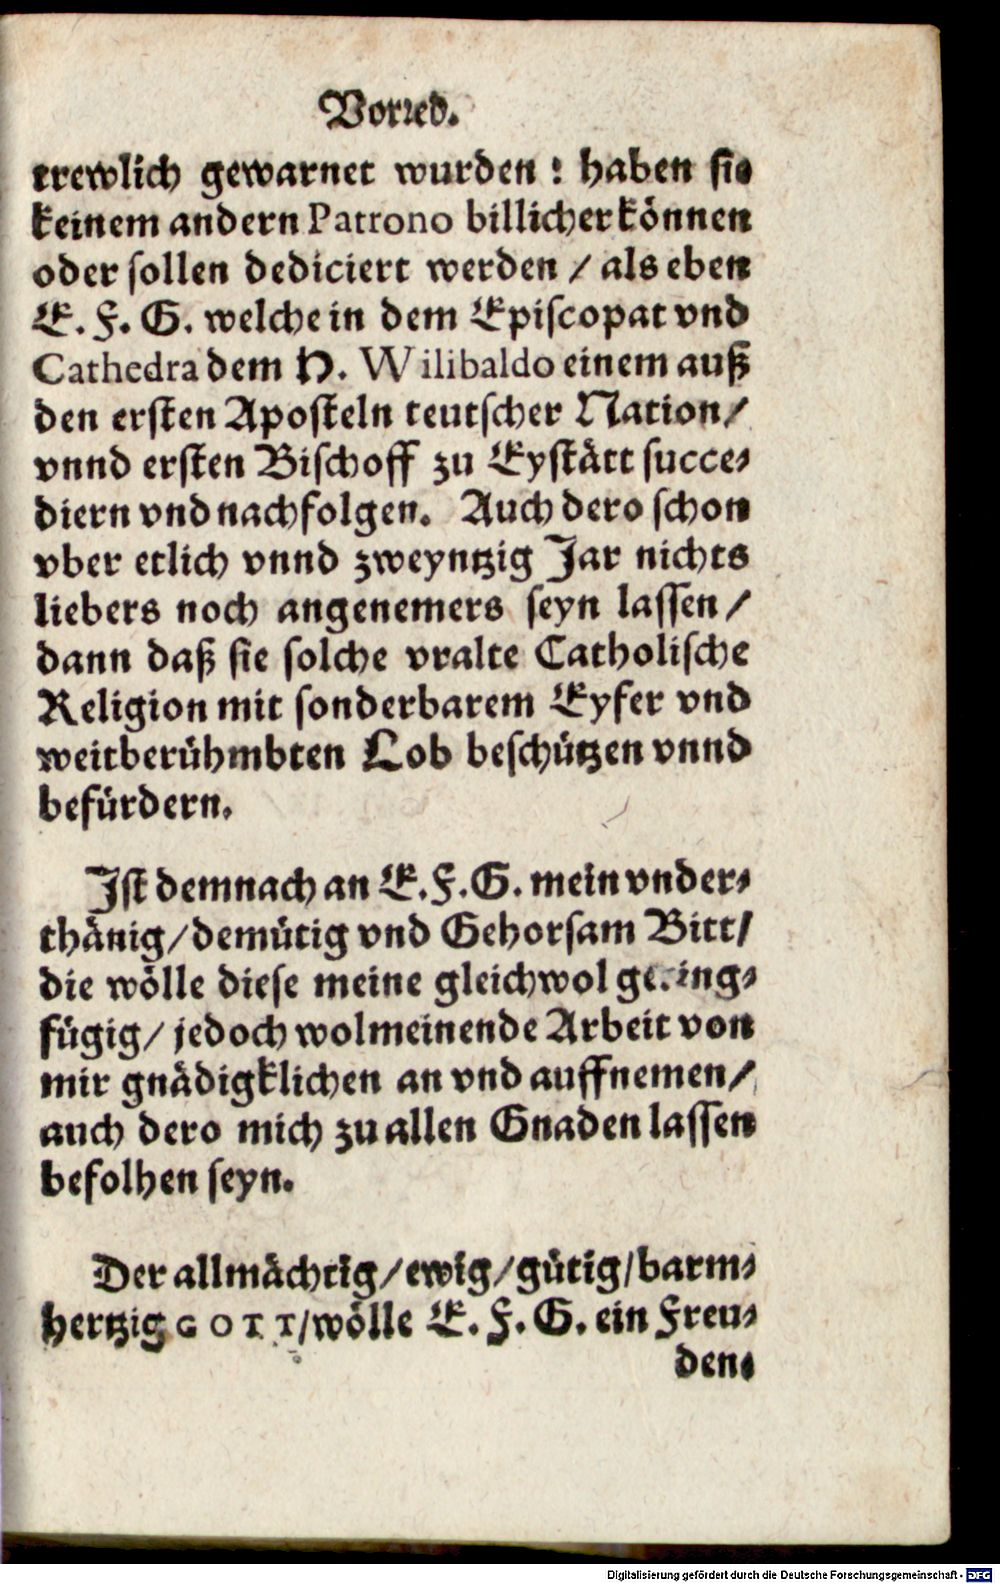 Vorꝛed.
trewlich gewarnet wurden: haben sie
keinem andern Patrono billicher können
oder sollen dediciert werden / als eben
E. F. G. welche in dem Episcopat vnd
Cathedra dem H. Wilibaldo einem auß
den ersten Aposteln teutscher Nation/
vnnd ersten Bischoff zu Eystätt succe-
diern vnd nachfolgen. Auch dero schon
vber etlich vnnd zweyntzig Jar nichts
liebers noch angenemers seyn lassen/
dann daß sie solche vralte Catholische
Religion mit sonderbarem Eyfer vnd
weitberühmbten Lob beschützen vnnd
befürdern.
Ist demnach an E. F. G. mein vnder-
thänig/demütig vnd Gehorsam Bitt/
die wölle diese meine gleichwol gering-
fügig/ jedoch wolmeinende Arbeit von
mir gnädigklichen an vnd auffnemen/
auch dero mich zu allen Gnaden lassen
befolhen seyn.
Der allmächtig/ewig/gütig/barm-
hertzig GOTT/wölle E. F. G. ein Freu-
den-
Digitalisierung gefördert durch die Deutsche Forschungsgemeinschaft - DFG